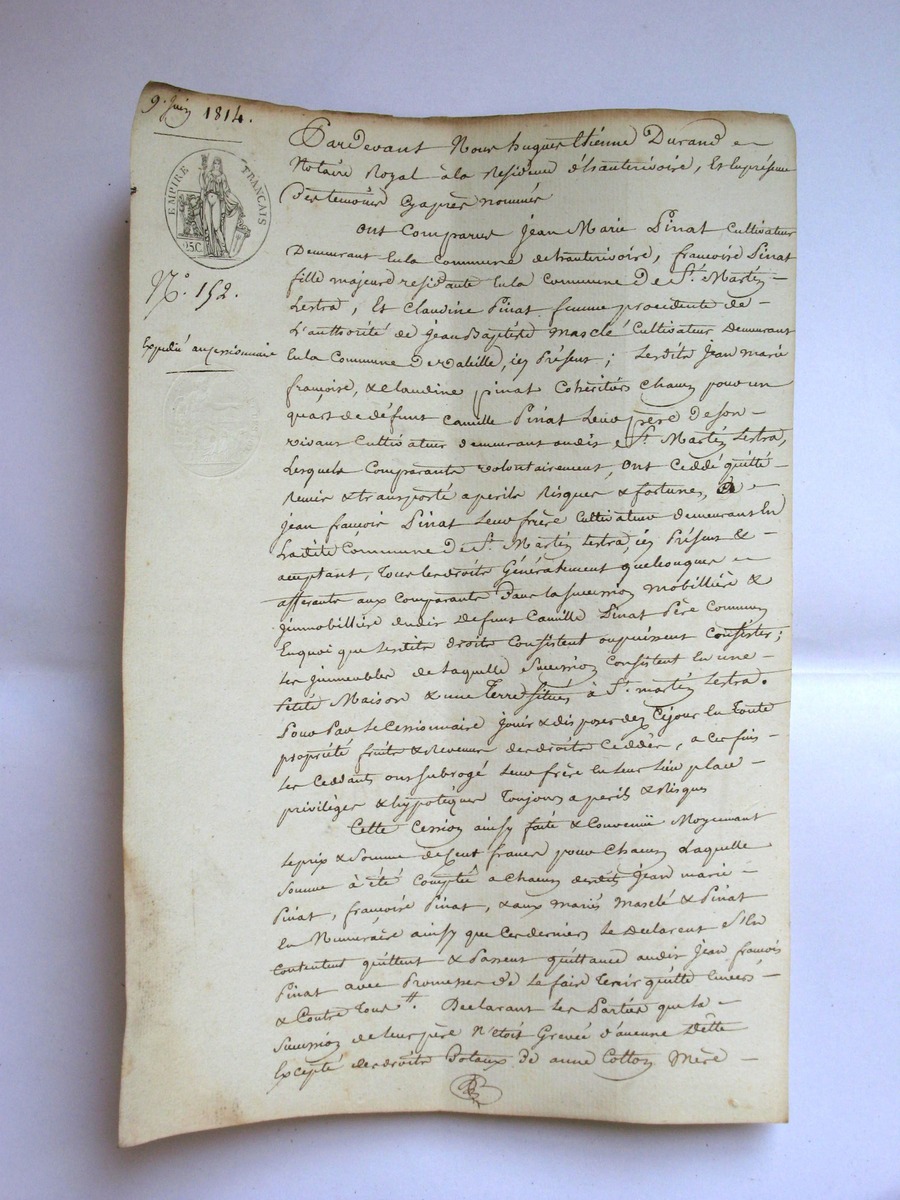 9. Juin 1814.
EMPIRE FRANÇAIS
25C
N.º 152.
Expedié au cessionnaire
Pardevant Nous hugues Etienne Durand
Notaire Royal à la Residence d'hauterivoire, Et en présence
Des temoins Cy après nommés
Ont Comparus Jean Marie Pinat Cultivateur
Demeurant En la Commune de hauterivoire, françoise Pinat
fille majeure residante En la Commune De St. Martin
Lestra, Et Claudine Pinat femme procedente de
L'authorité de Jean Baptiste Masclé Cultivateur Demeurant
En la Commune De Valeille, icy Présent; Lesdits Jean marie
françoise, & Claudine pinat Cohéritiers Chacun pour un
quart de défunt Camille Pinat Leur père De son
vivant Cultivateur demeurant audit St. Martin Lestra,
Lesquels Comparants volontairement, ont Ceddé quitté
Remis & transporté a perils Risques & fortunes, a
Jean françois Pinat Leur frère Cultivateur demeurant En
Ladite Commune De St. Martin Lestra, icy Présent &
acceptant, Tous les droits Généralement quelconques
afferants aux Comparants Dans la succession mobillière &
immobillière dudit defunt Camille Pinat Père Commun
En quoi que lesdits droits Consistent ou puissent Consister;
Les immeubles de laquelle Succession Consistent En une
Petite Maison & une Terre situés à St. martin Lestra.
Pour Par le Cessionnaire jouir & disposer dez Cejour En Toute
propriété fruits & Revenus des droits Ceddés, a Ces fins
Les Ceddants ont subrogé Leur frère En Leur Lieu place
privilèges & hypotèques Toujours a perils & Risques
Cette Cession ainsy faite & Convenüe Moyennant
Le prix & Somme de Cent francs pour Chacun Laquelle
Somme à été Compté a Chacun desdits Jean marie
Pinat, françoise Pinat, & aux mariés Masclé & Pinat
En Numéraire ainsy que Ces derniers Le Declarent s'En
Contentent quittent & Passent quittance audit Jean françois
Pinat avec Promesse De Le faire Tenir quitte Envers
& Contre Tous. Declarant Les Parties que La
Succession de leur père N'etoit Grevée d'aucune Dette
Excepté des droits Dotaux De anne Cotton Mère